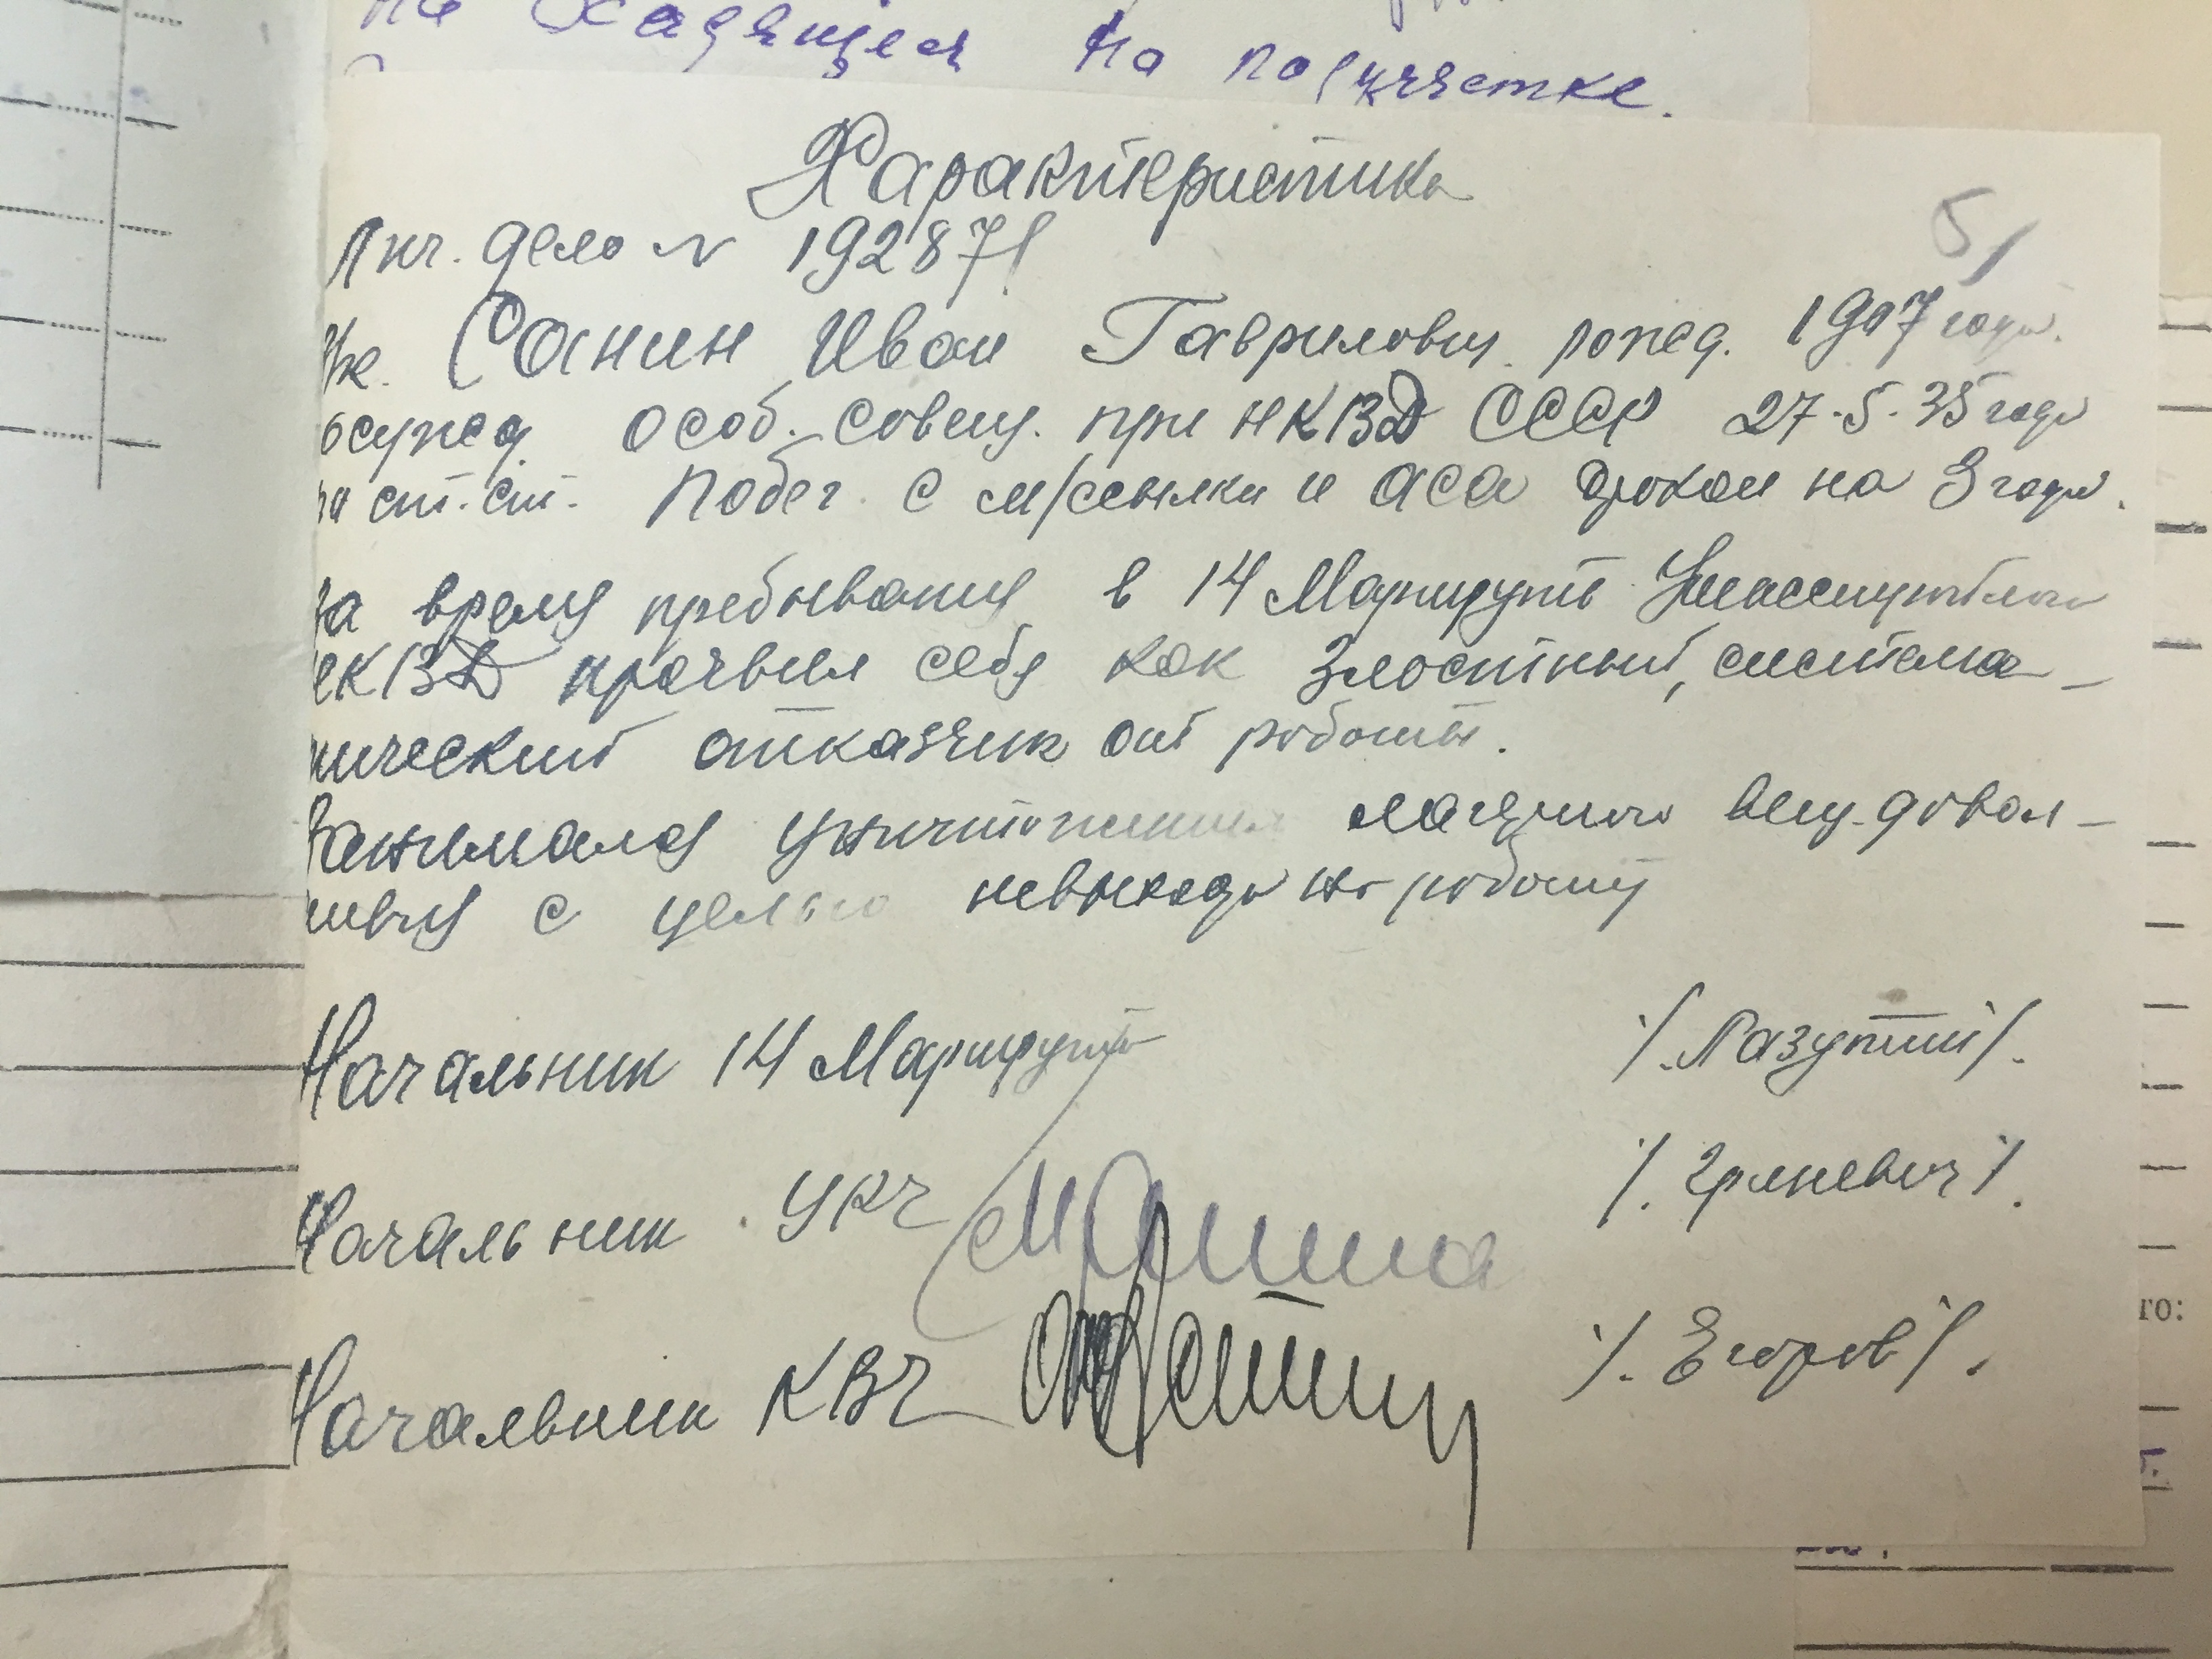 не находящиеся на подучастке.
Характеристика
5/
Лич. дело № 192871
з/к. Санин Иван Гаврилович рожед. 1907 года.
осужед. особ. совещ. при НКВД СССР 27.5.35 года
по ст. ст. Побег. с м/ссылки и аса сроком на 3 года.
За время пребывания в 14 Маршруте
НКВД проявил себя как злостный, система-
тический отказчик от работы.
Занимался уничтожением лагерного вещ. доволь-
ствия с целью невыхода на работу
Начальник 14 Маршрута /. Лазутин/.
Начальник УРЧ /. Гриневич/.
Начальник КВЧ /. Егоров/.
го: